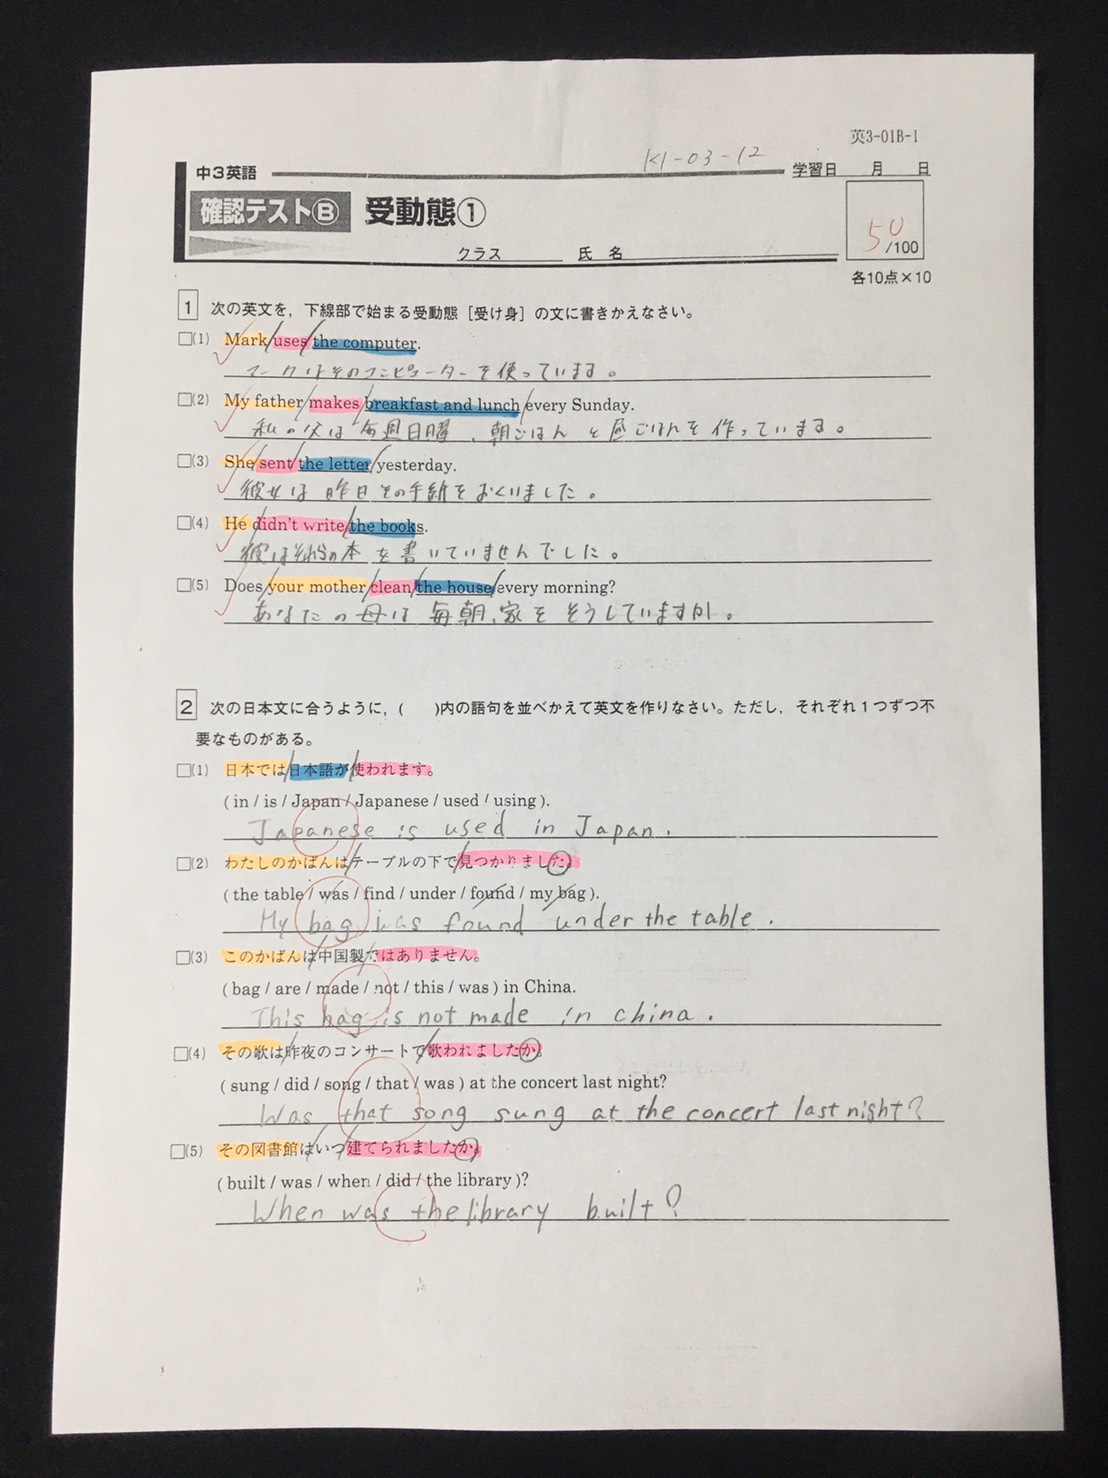 英3-01B-1
K1-03-12
中3英語
学習日 月 日
確認テストⒷ 受動態①
50/100
クラス 氏名
各10点×10
1 次の英文を，下線部で始まる受動態［受け身］の文に書きかえなさい。
□(1) Mark/uses/the computer.
マークはそのコンピューターを使っています。
□(2) My father/makes/breakfast and lunch/every Sunday.
私の父は毎週日曜、朝ごはんと昼ごはんを作っています。
□(3) She/sent/the letter/yesterday.
彼女は昨日その手紙をおくいました。
□(4) He/didn't write/the books.
彼はそれらの本を書いていませんでした。
□(5) Does/your mother/clean/the house/every morning?
あなたの母は毎朝、家をそうしていますか。
2 次の日本文に合うように，( )内の語句を並べかえて英文を作りなさい。ただし，それぞれ1つずつ不
要なものがある。
□(1) 日本では/日本語が/使われます。
( in / is / Japan / Japanese / used / using ).
Japanese is used in Japan.
□(2) わたしのかばんは/テーブルの下で/見つかりました。
( the table / was / find / under / found / my bag ).
My bag was found under the table.
□(3) このかばんは/中国製/ではありません。
( bag / are / made / not / this / was ) in China.
This bag is not made in china.
□(4) その歌は/昨夜のコンサートで/歌われましたか。
( sung / did / song / that / was ) at the concert last night?
Was that song sung at the concert last night?
□(5) その図書館は/いつ/建てられましたか。
( built / was / when / did / the library )?
When was the library built?